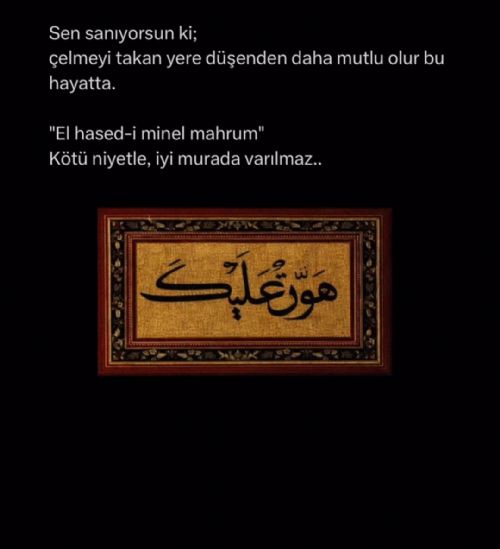 Sen sanıyorsun ki;
çelmeyi takan yere düşenden daha mutlu olur bu
hayatta.
"El hased-i minel mahrum"
Kötü niyetle, iyi murada varılmaz..
هَوِّنْ عَلَيْكَ